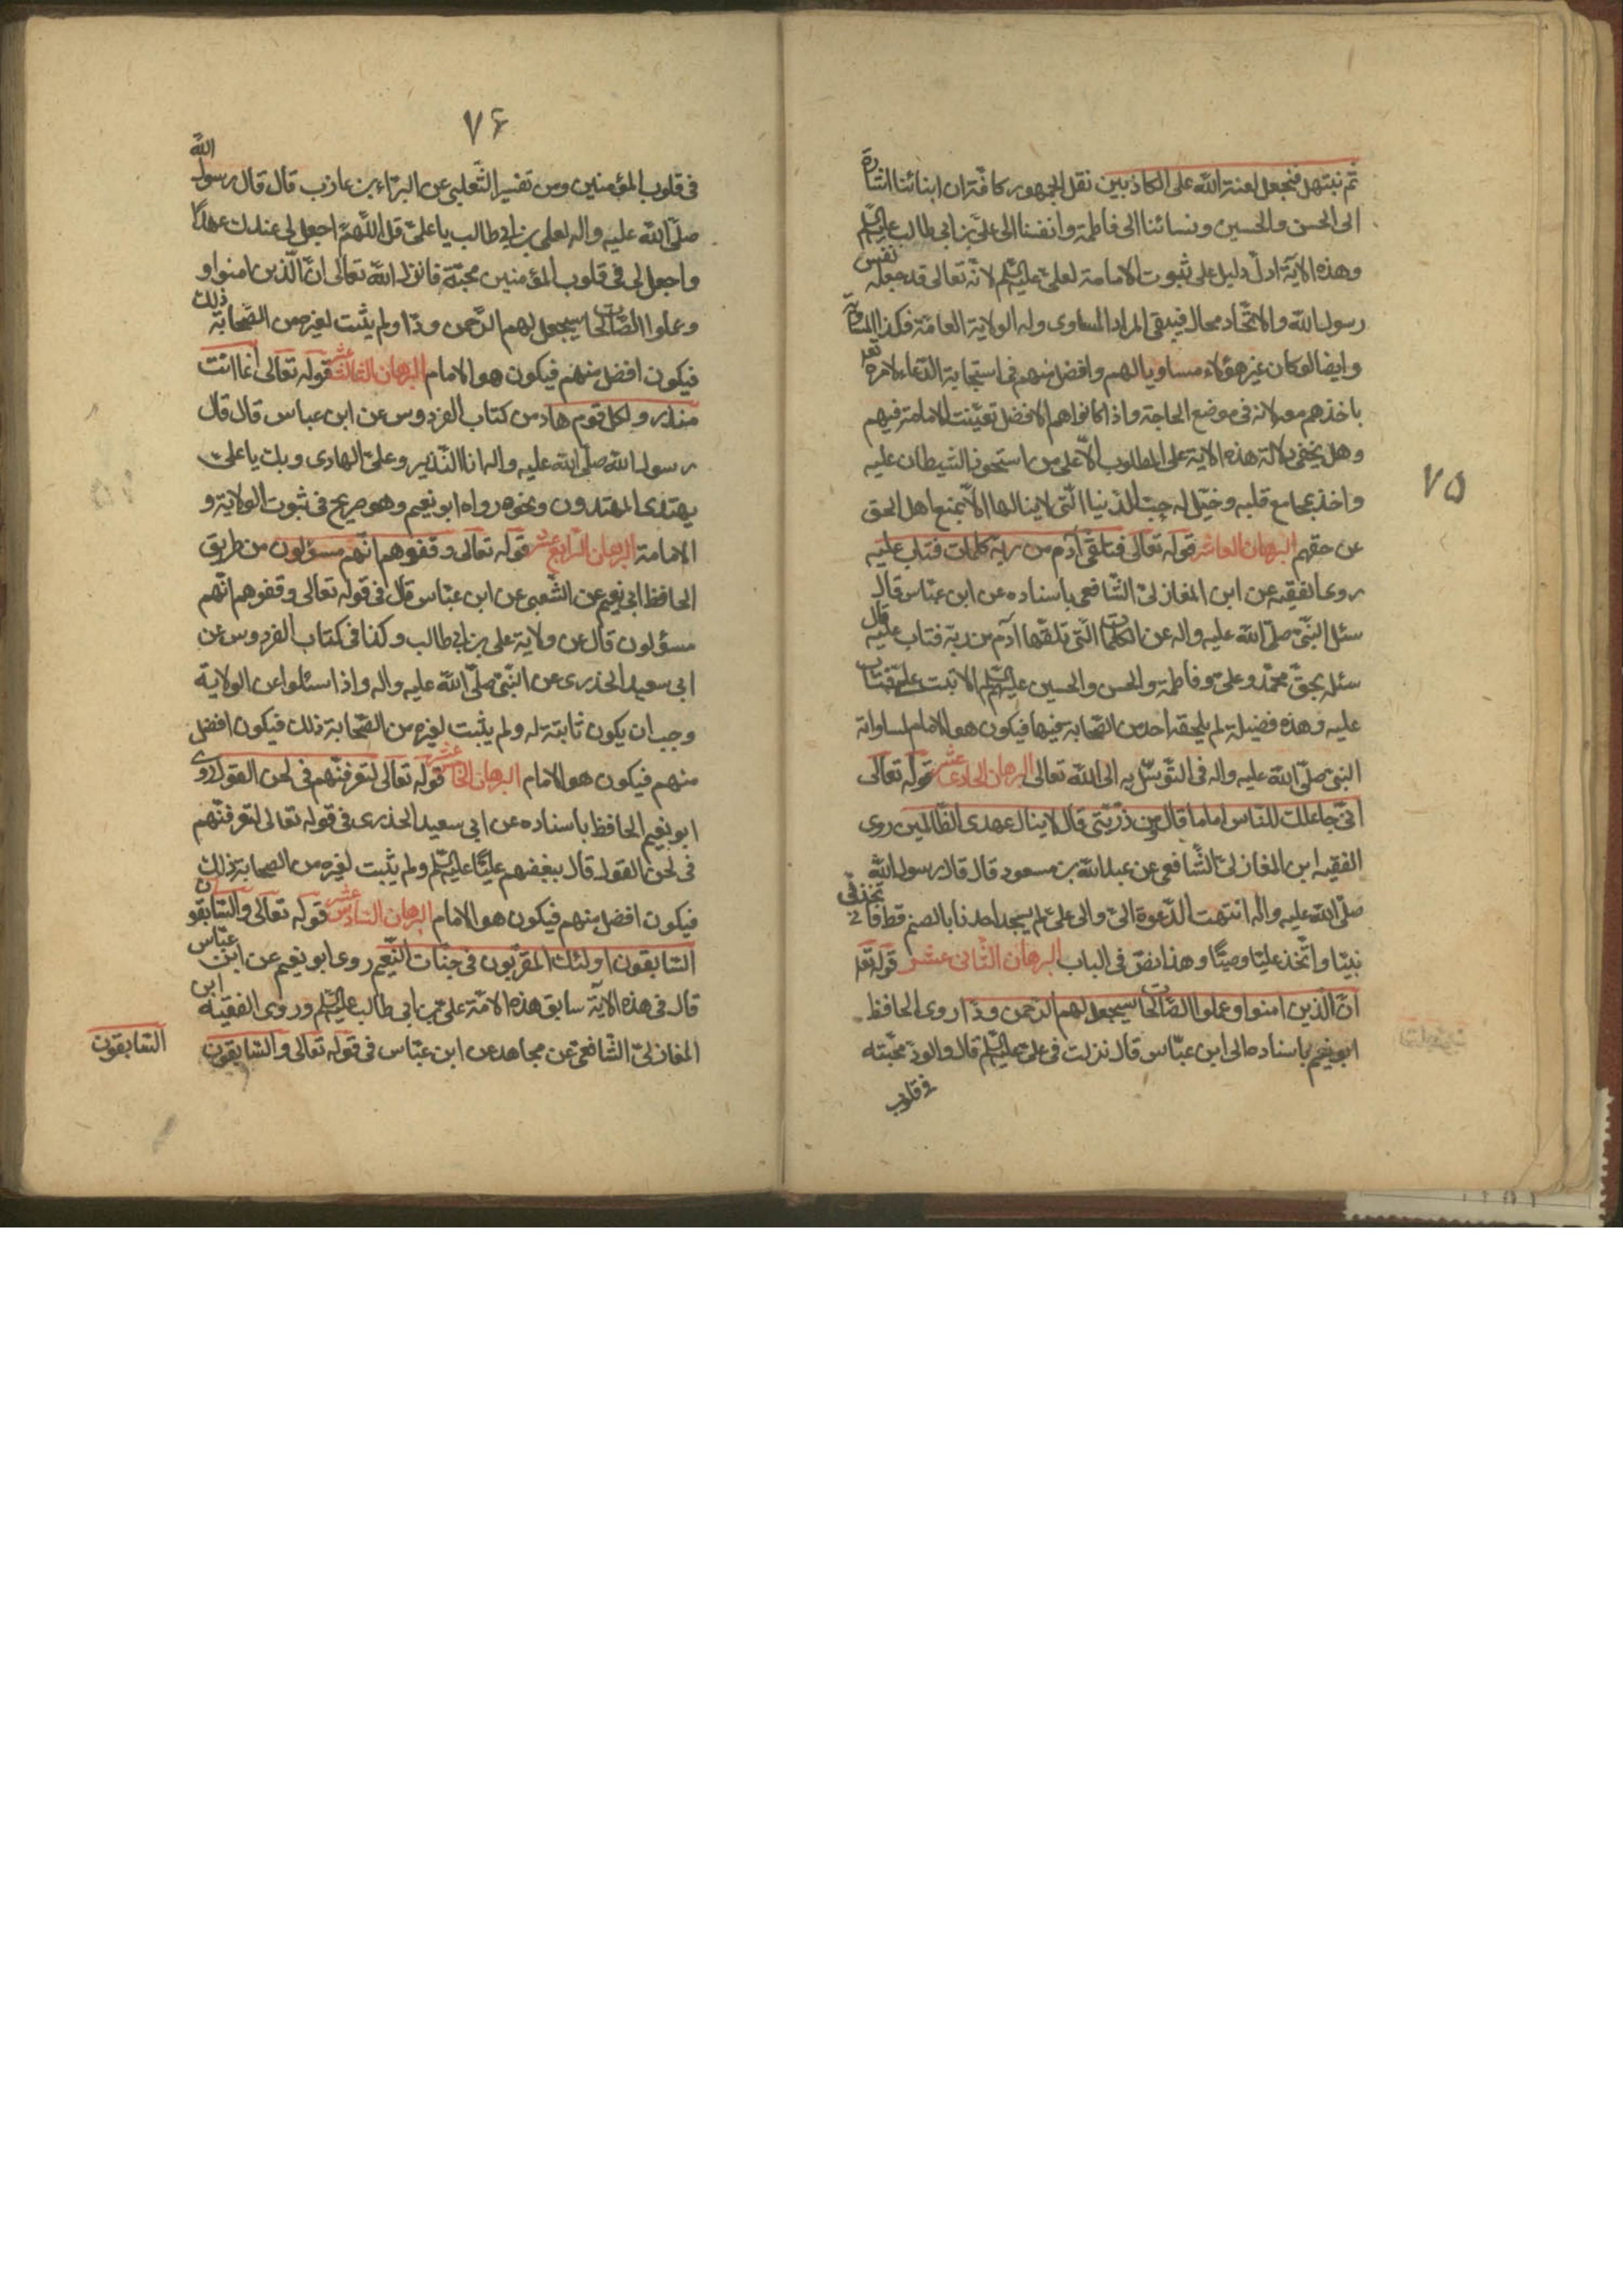 ٧٥
ثم نبتهل فنجعل لعنة الله على الكاذبين نقل الجمهور كافة ان ابنائنا اشارة
الى الحسن والحسين ونسائنا الى فاطمة وانفسنا الى علي بن ابي طالب عليه السلم
وهذه الآية ادل دليل على ثبوت الامامة لعلي عليه السلم لانه تعالى قد جعله نفس
رسول الله والاتحاد محال فيبقى المراد المساوى وله الولاية العامة فكذا المساويه
وايضا لو كان غير هؤلاء مساويا لهم وافضل منهم في استجابة الدعاء لامره تعا
باخذهم معه لانه في موضع الحاجة واذا كانوا هم الافضل تعينت الامامة فيهم
وهل يخفى دلالة هذه الاية على المطلوب الا على من استحوذ الشيطان عليه
واخذ بمجامع قلبه وخيل له حب الدنيا التي لا ينالها الا بمنع اهل الحق
عن حقهم البرهان العاشر قوله تعالى فتلقى آدم من ربه كلمات فتاب عليه
روى الفقيه عن ابن المغازلي الشافعي باسناده عن ابن عباس قال
سئل النبي صلى الله عليه واله عن الكلمات التي تلقها آدم من ربه فتاب عليه قال
سئله بحق محمد وعلي وفاطمة والحسن والحسين عليهم السلم الا تبت علي فتاب
عليه وهذه فضيلة لم يلحقه احد من الصحابة فيها فيكون هو الامام لمساواته
النبي صلى الله عليه واله في التوسل به الى الله تعالى البرهان الحادى عشر قوله تعالى
اني جاعلك للناس اماما قال ومن ذريتي قال لا ينال عهدى الظالمين روى
الفقيه ابن المغازلي الشافعي عن عبد الله بن مسعود قال قال رسول الله
صلى الله عليه واله انتهت الدعوة الي والى علي لم يسجد احدنا بالصنم قط فاتخذنى
نبيا واتخذ عليا وصيا وهذا نص في الباب البرهان الثانى عشر قوله تعا
ان الذين امنوا وعملوا الصالحات سيجعل لهم الرحمن ودا روى الحافظ
ابو نعيم باسناده الى ابن عباس قال نزلت في علي عليه السلم قال والود محبته
في قلوب
٧۶
في قلوب المؤمنين ومن تفسير الثعلبي عن البراء بن عازب قال قال رسول الله
صلى الله عليه واله لعلي بن ابي طالب يا علي قل اللهم اجعل لى عندك عهدا
واجعل لى في قلوب المؤمنين محبة فانزل الله تعالى ان الذين امنوا و
وعملوا الصالحات سيجعل لهم الرحمن ودا ولم يثبت لغيره من الصحابة ذلك
فيكون افضل منهم فيكون هو الامام البرهان الثالث عشر قوله تعالى انما انت
منذر ولكل قوم هاد من كتاب الفردوس عن ابن عباس قال قال
رسول الله صلى الله عليه واله انا النذير وعلي الهادى وبك يا علي
يهتدى المهتدون ونحوه رواه ابو نعيم وهو صريح في ثبوت الولاية و
الامامة البرهان الرابع عشر قوله تعالى وقفوهم انهم مسؤلون من طريق
الحافظ ابي نعيم عن الشعبي عن ابن عباس قال في قوله تعالى وقفوهم انهم
مسؤلون قال عن ولاية علي بن ابي طالب وكذا في كتاب الفردوس عن
ابي سعيد الخدرى عن النبي صلى الله عليه واله واذا سئلوا عن الولاية
وجب ان يكون ثابتة له ولم يثبت لغيره من الصحابة ذلك فيكون افضل
منهم فيكون هو الامام البرهان الخامس عشر قوله تعالى لتعرفنهم في لحن القول روى
ابو نعيم الحافظ باسناده عن ابي سعيد الخدرى في قوله تعالى لتعرفنهم
في لحن القول قال ببغضهم عليا عليه السلم ولم يثبت لغيره من الصحابة ذلك
فيكون افضل منهم فيكون هو الامام البرهان السادس عشر قوله تعالى والسابقون
السابقون اولئك المقربون في جنات النعيم روى ابو نعيم عن ابن عباس
قال في هذه الاية سابق هذه الامة علي بن ابي طالب عليه السلم وروى الفقيه ابن
المغازلي الشافعي عن مجاهد عن ابن عباس في قوله تعالى والسابقون
السابقون